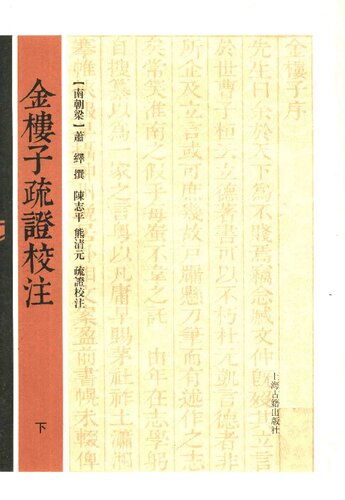 金樓子序
先生曰余於天下爲不賤焉竊念臧文仲既殁其立言
於世曹子桓云立德著書可以不朽杜元凱言德者非
所企及立言或可庶幾故户牖懸刀筆而有述作之志
矣常笑淮南之假手每蚩不韋之託 由年在志學躬
自搜纂以爲一家之言粤以凡庸早賜茅社祚土瀟湘
搴帷 案盈前書幌未輟俾
上海古籍出版社
【南朝梁】蕭 繹 撰 陳志平 熊清元 疏證校注
金樓子疏證校注
下